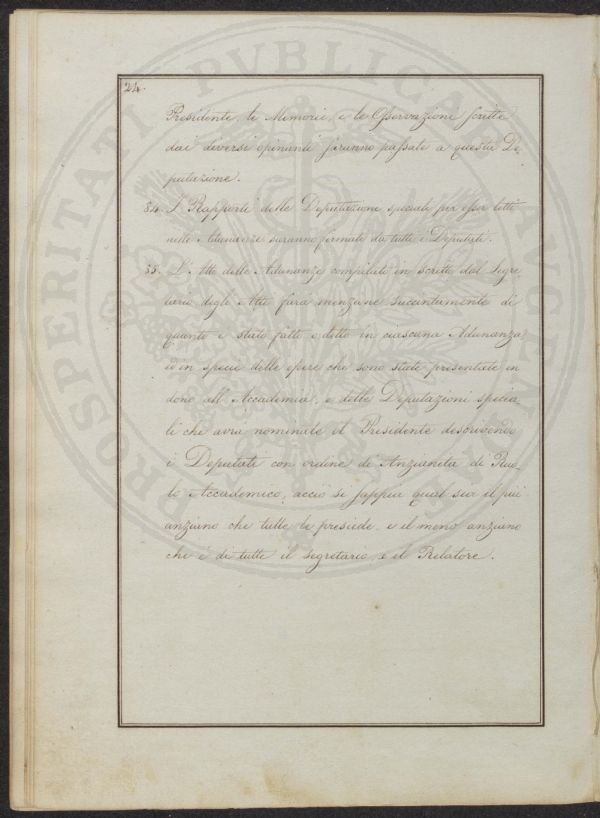 24.
Presidente, le Memorie, e le Osservazione scritte
dai diversi opinanti saranno passate a questa De
putazione.
84. I Rapporti delle Deputazione speciali pria esser letti
nelle Adunanze saranno firmate da tutti i Deputati.
85. L'Atto delle Adunanze compilato in scritto dal Segre
tario degli Atti farà menzione succintamente di
quanto è stato fatto o detto in ciascuna Adunanza
e in specie delle opere che sono state presentate in
dono all'Accademia, e delle Deputazioni specia-
li che avrà nominate il Presidente descrivendo
i Deputati con ordine di Anzianeta di Ruo-
lo Accademico, acciò si sappia qual sia il più
anziano che tutte le presiede, e il meno anziano
che è di tutte il segretario, e il Relatore.
PROSPERITATI PUBLICAE AUGENDAE